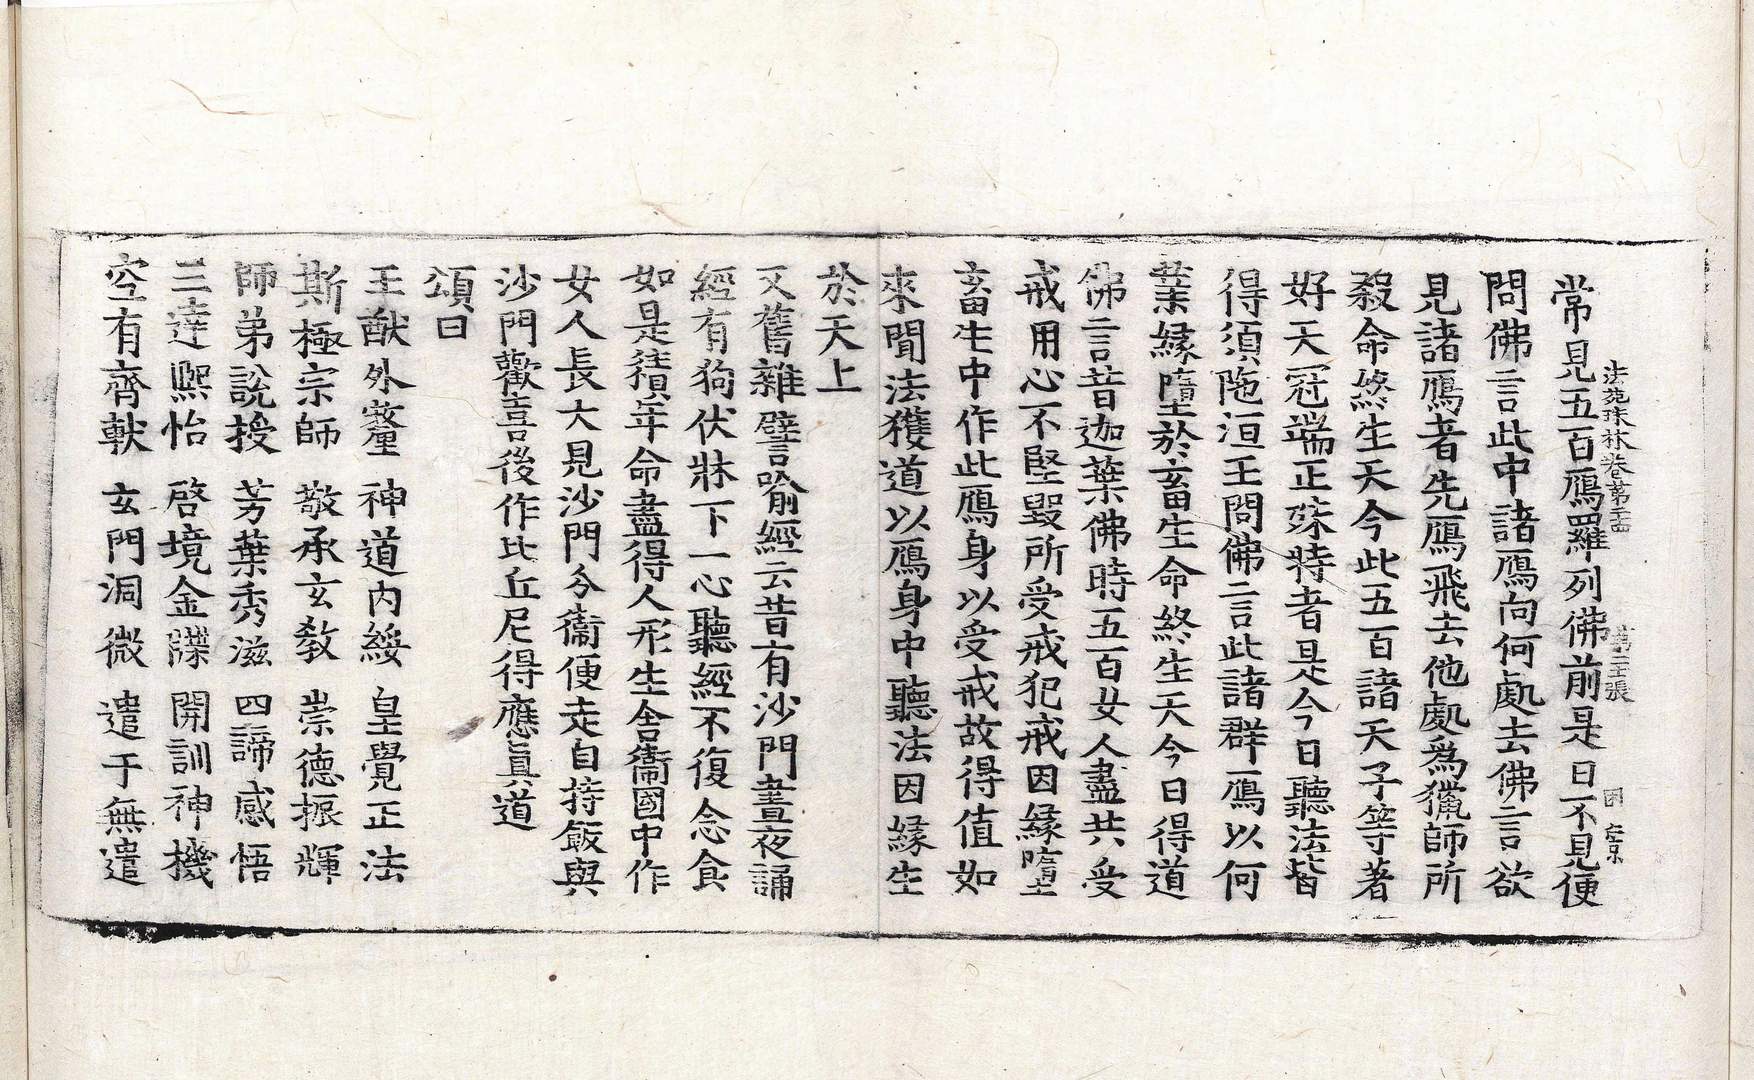 法苑珠林卷第二十四 第二十張 困
常見五百鴈羅列佛前是日不見便
問佛言此中諸鴈向何處去佛言欲
見諸鴈者先鴈飛去他處爲獵師所
殺命終生天今此五百諸天子等著
好天冠端正殊特者是今日聽法皆
得須陁洹王問佛言此諸群鴈以何
業緣墮於畜生命終生天今日得道
佛言昔迦葉佛時五百女人盡共受
戒用心不堅毀所受戒犯戒因緣墮
畜生中作此鴈身以受戒故得值如
來聞法獲道以鴈身中聽法因緣生
於天上
又舊雜譬喻經云昔有沙門晝夜誦
經有狗伏牀下一心聽經不復念食
如是積年命盡得人形生舍衛國中作
女人長大見沙門分衛便走自持飯與
沙門歡喜後作比丘尼得應眞道
頌曰
王猷外釐 神道內綏 皇覺正法
斯極宗師 敬承玄教 崇德振輝
師弟說授 芳葉秀滋 四諦感悟
三達熈怡 啓境金牒 開訓神機
空有齊軑 玄門洞微 遣于無遣